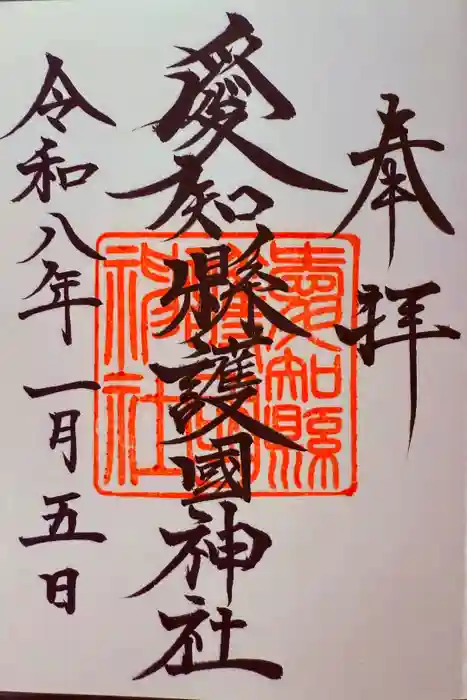 奉拝
愛知縣護國神社
愛知縣
護國
神社
令和八年一月五日